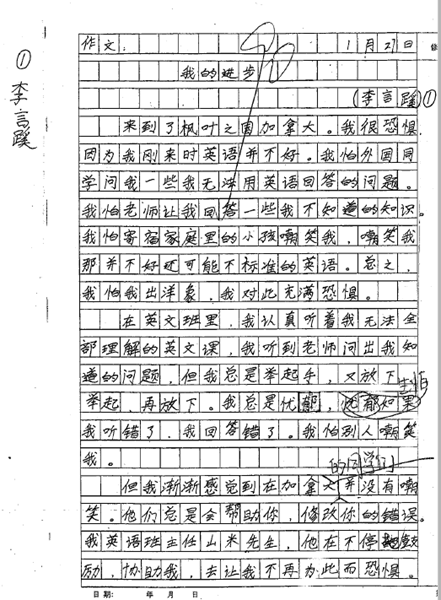 作文 90 1月27日
① 李言蹊
我的进步
(李言蹊) ①
来到了枫叶之国加拿大。我很恐惧
因为我刚来时英语并不好。我怕外国同
学问我一些我无法用英语回答的问题。
我怕老师让我回答一些我不知道的知识。
我怕寄宿家庭里的小孩嘲笑我,嘲笑我
那并不好还可能不标准的英语。总之,
我怕我出洋象,我对此充满恐惧。
在英文班里,我认真听着我无法全
部理解的英文课,我听到老师问出我知
道的问题,但我总是举起手,又放下
举起,再放下。我总是忧郁,忧郁如果
我听错了,我回答错了。我怕别人嘲笑
我。
的同学们
但我渐渐感觉到在加拿大并没有嘲
笑。他们总是会帮助你,修改你的错误。
我英语班主任山米先生,他在不停鼓
励,协助我,去让我不再为此而恐惧。
日期: 年 月 日